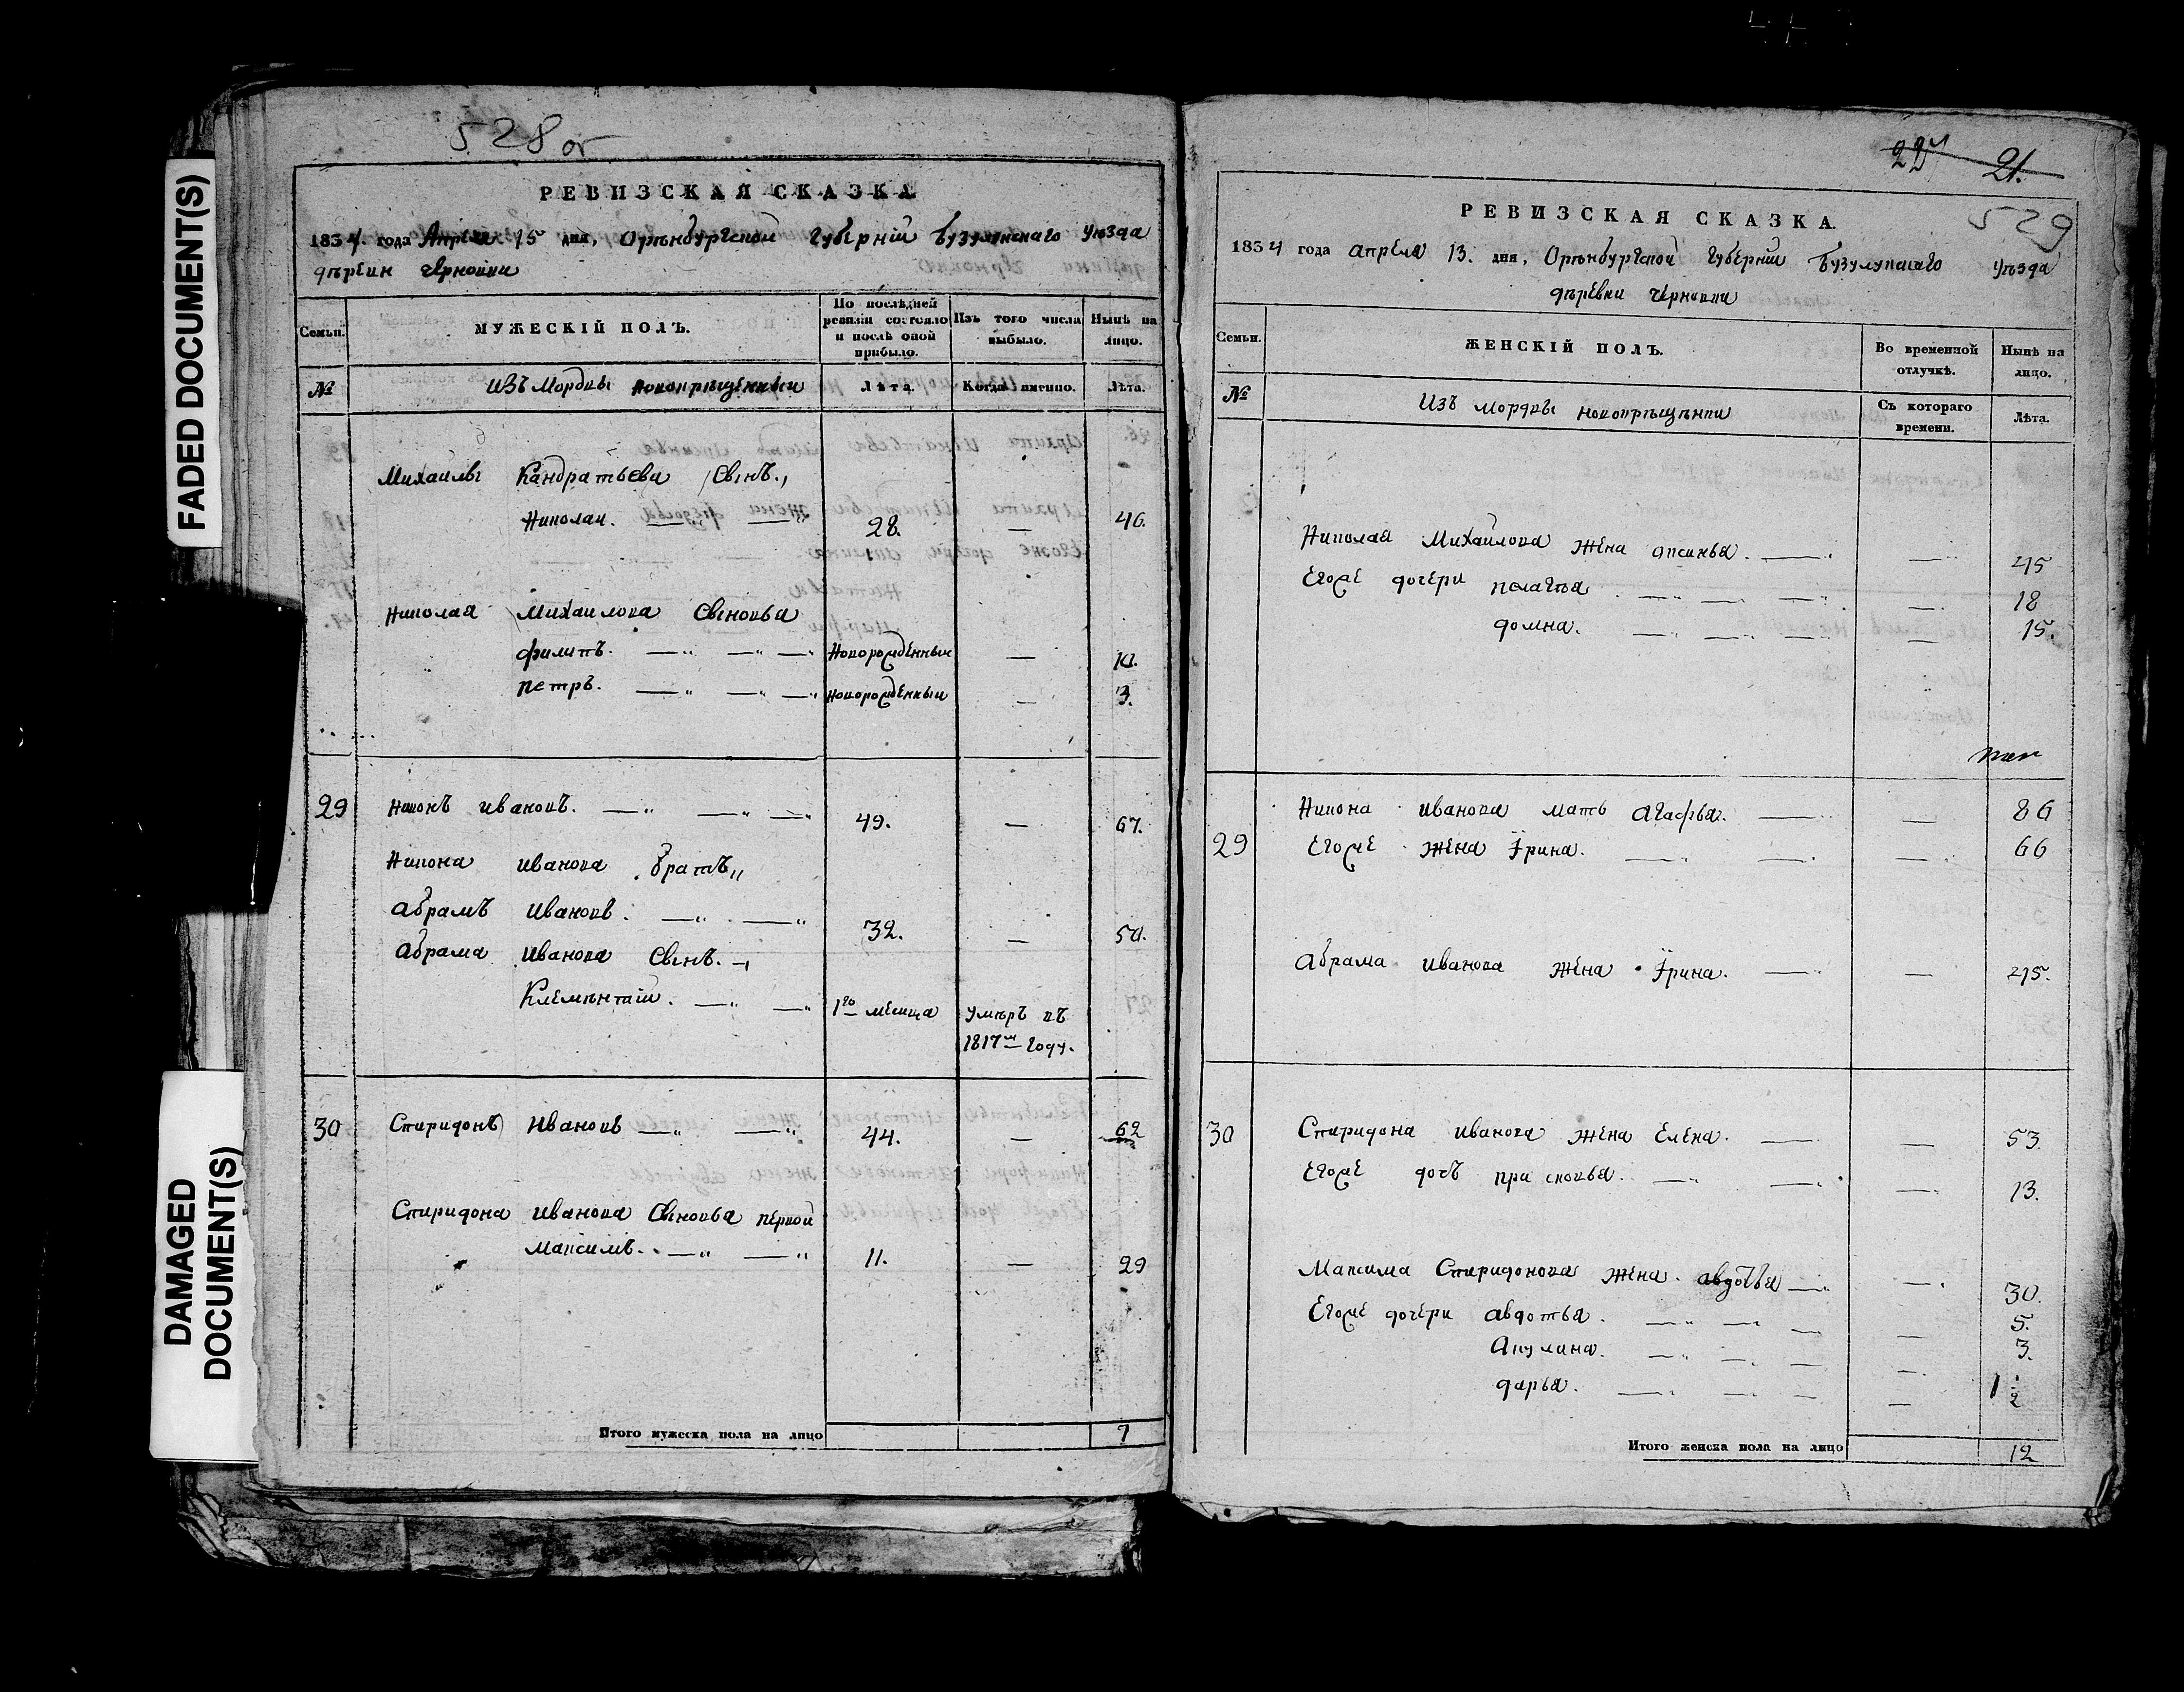 FADED DOCUMENT(S)
DAMAGED
DOCUMENT(S)
528 об
РЕВИЗСКАЯ СКАЗКА
1834. года Апреля 15 дня, Оренбургской Губерніи Бузулукскаго уезда
деревни черновки
Семьи.
МУЖЕСКІЙ ПОЛЪ.
По послѣдней
ревизіи состояло
и послѣ оной
прибыло.
Изъ того числа
выбыло.
Нынѣ на
лицо.
№
Изъ Мордвы новокрещенныи
Лѣта.
Когда именно.
Лѣта.
Михаилы Кандратьева сынъ.,
Николаи. 28. — 46.
Николая Михаилова сыновья
филипъ. Новорожденныи — 10.
петръ. новорожденныи — 3.
29 Никонъ ивановъ. 49. — 67.
Никона иванова братъ,,
абрамъ ивановъ. 32. — 50.
абрама иванова сынъ.
Клементаи. 1го месица умеръ въ
1817м году.
30 Спиридонъ ивановъ 44. — 62
Спиридона иванова сыновья первой
максимъ. 11. — 29
Итого мужеска пола на лицо 7
22 21.
529
РЕВИЗСКАЯ СКАЗКА.
1834 года апреля 13. дня, Оренбургской Губерніи Бузулукскаго уезда
деревни черновки
Семьи.
ЖЕНСКІЙ ПОЛЪ.
Во временной
отлучкѣ.
Нынѣ на
лицо.
№
Изъ мордвы новокрещенки
Съ котораго
времени.
Лѣта.
Николая Михаилова жена аксинья. — 45
Егоже дочери пелагея — 18
домна. — 15.
29
Никона иванова мать агафья. — 86
Егоже жена Ирина. — 66
абрама иванова жена Ирина. — 45.
30 Спиридона иванова жена Елена. — 53.
Егоже дочъ прасковья. — 13.
Максима Спиридонова жена авдотья — 30.
Егоже дочери авдотья. — 5.
Акулина. — 3.
дарья. — 1 1/2
Итого женска пола на лицо 12